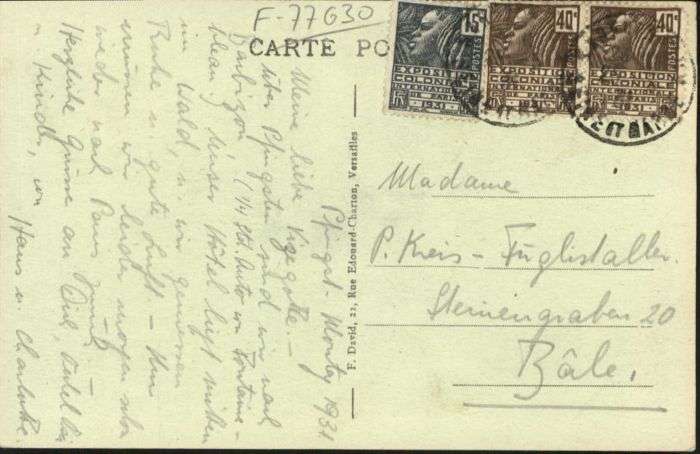 F-77630
CARTE PO
15c
POSTES
EXPOSITION
COLONIALE
INTERNATIONALE
PARIS
1931
40c
POSTES
EXPOSITION
COLONIALE
INTERNATIONALE
PARIS
1931
40c
POSTES
EXPOSITION
COLONIALE
INTERNATIONALE
PARIS
1931
Pfingst-Montag 1931
Meine liebe
über Pfingsten sind wir nach
Barbizon (1/4 Std. Auto von Fontaine-
bleau). Unser Hotel liegt mitten
im Wald, u. wir geniessen
Ruhe u. gute Luft -
müssen wir leider morgen schon
wieder nach Paris
Herzliche Grüsse an
u Kinder, von
Hans u. Charlotte.
F. David, 22, Rue Edouard-Charton, Versailles
Madame
P. Kreis-Füglistaller.
Sternengraben 20
Bâle.